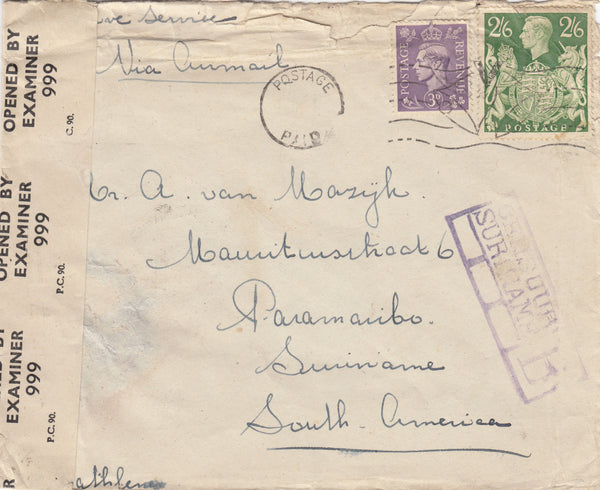 ve Service
Via Airmail
POSTAGE
PAID
POSTAGE
REVENUE
3D
2/6 2/6
POSTAGE
OPENED BY
EXAMINER
999
C. 90.
OPENED BY
EXAMINER
999
P.C. 90.
ED BY
EXAMINER
999
P.C. 90.
R
Mr. A. van Mazijk.
Mauritsstraat 6
Paramaribo.
Suriname
South-America
SURINAME